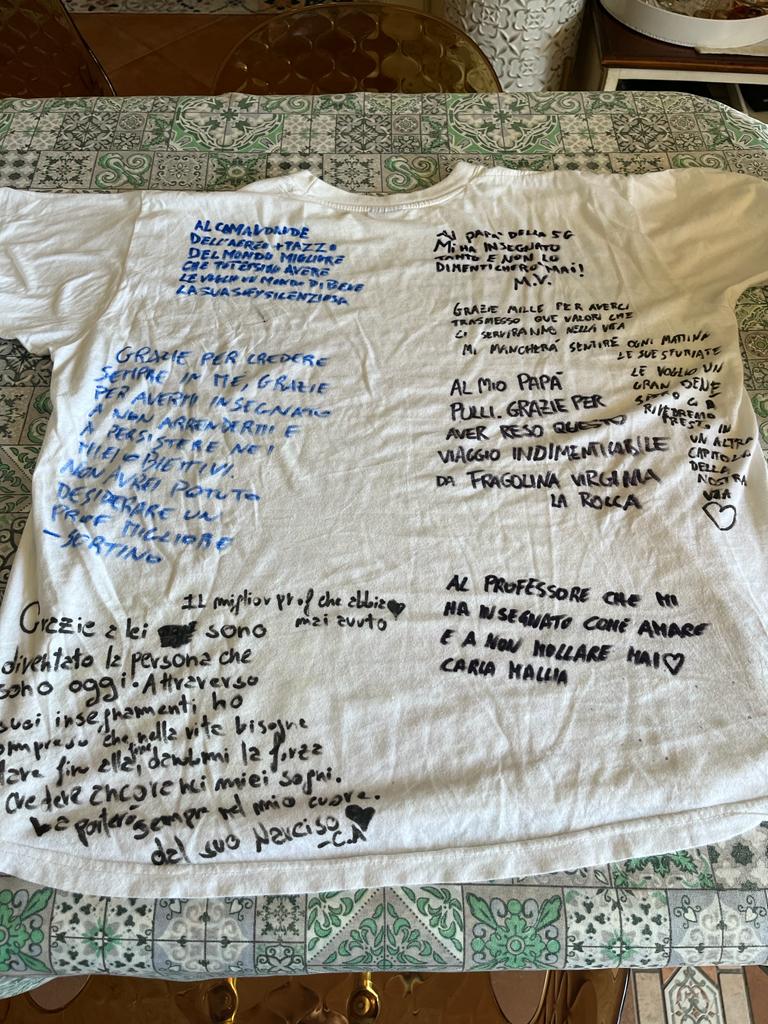 AL COMANDANDE
DELL'AEREO + PAZZO
DEL MONDO MIGLIORE
CHE POTESSIMO AVERE
LE VOGLIO UN MONDO DI BENE
LA SUA SILENZIOSA
GRAZIE PER CREDERE
SEMPRE IN ME, GRAZIE
PER AVERMI INSEGNATO
A NON ARRENDERMI E
A PERSISTERE NEI
MIEI OBIETTIVI.
NON AVREI POTUTO
DESIDERARE UN
PROF MIGLIORE
- SORTINO
IL miglior prof che abbia
mai avuto
Grazie a lei sono
diventato la persona che
sono oggi. Attraverso
suoi insegnamenti ho
ompreso che nella vita bisogna
fine
fino alla, dandomi la forza
credere ancora nei miei sogni.
La porterò sempre nel mio cuore.
dal suo Narciso
-C.A
AL PAPÀ DELLA 5G
MI HA INSEGNATO
TANTO E NON LO
DIMENTICHERÒ MAI!
M.V.
GRAZIE MILLE PER AVERCI
TRASMESSO QUE VALORI CHE
CI SERVIRANNO NELLA VITA
MI MANCHERÀ SENTIRE OGNI MATTINA
LE SUE STURIATE
LE VOGLIO UN
GRAN BENE
SPERO CI
RIVEDREMO
PRESTO IN
UN ALTRO
CAPITOLO
DELLA
NOSTRA
VITA
AL MIO PAPÀ
PULLI. GRAZIE PER
AVER RESO QUESTO
VIAGGIO INDIMENTICABILE
DA FRAGOLINA VIRGINIA
LA ROCCA
AL PROFESSORE CHE MI
HA INSEGNATO COME AMARE
E A NON MOLLARE MAI
CARLA MALLIA